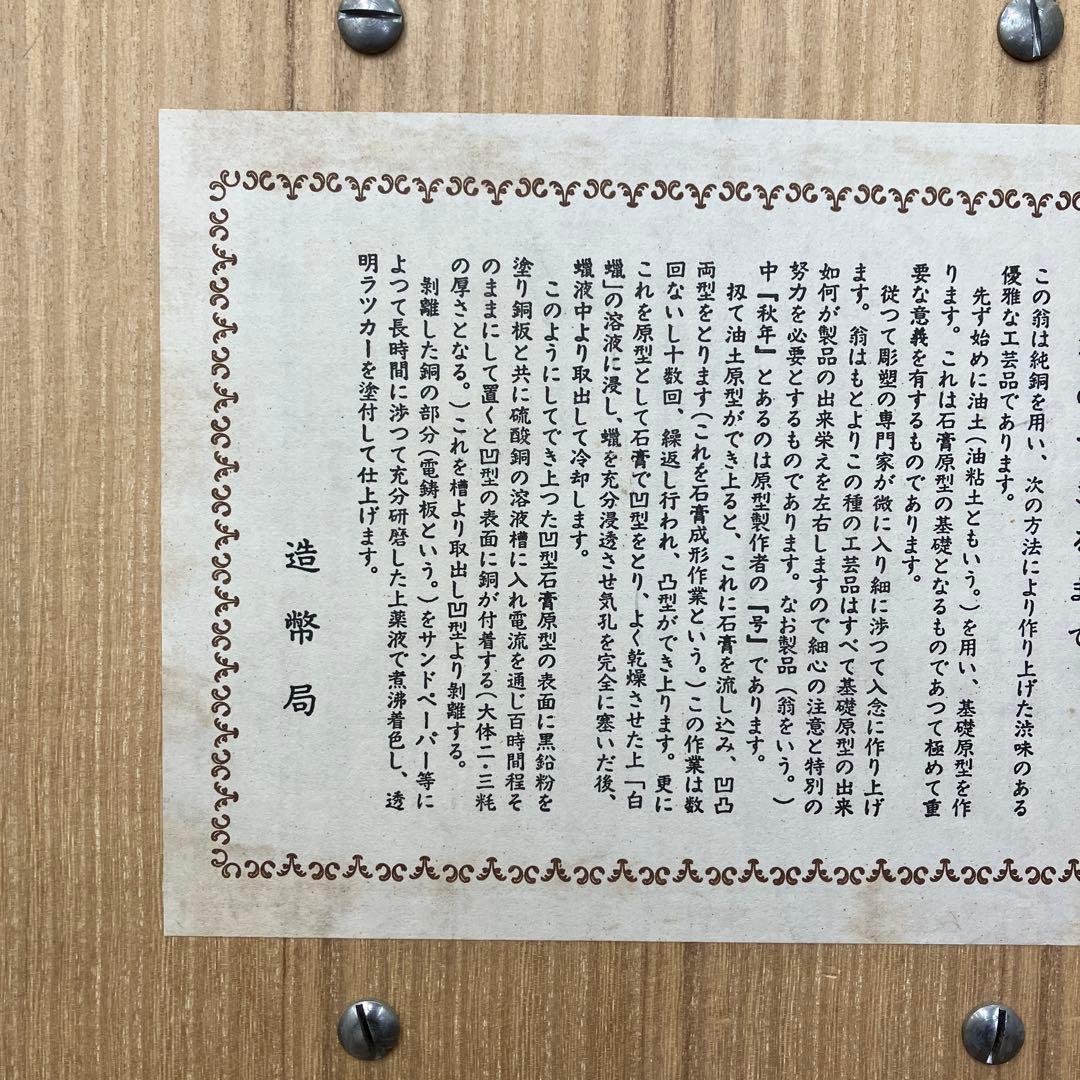 できるまで
この翁は純銅を用い、次の方法により作り上げた渋味のある
優雅な工芸品であります。
先ず始めに油土（油粘土ともいう。）を用い、基礎原型を作
ります。これは石膏原型の基礎となるものであつて極めて重
要な意義を有するものであります。
従つて彫塑の専門家が微に入り細に渉つて入念に作り上げ
ます。翁はもとよりこの種の工芸品はすべて基礎原型の出来
如何が製品の出来栄えを左右しますので細心の注意と特別の
努力を必要とするものであります。なお製品（翁をいう。）
中『秋年』とあるのは原型製作者の『号』であります。
扨て油土原型ができ上ると、これに石膏を流し込み、凹凸
両型をとります（これを石膏成形作業という。）この作業は数
回ないし十数回、繰返し行われ、凸型ができ上ります。更に
これを原型として石膏で凹型をとり、よく乾燥させた上「白
蠟」の溶液に浸し、蠟を充分浸透させ気孔を完全に塞いだ後、
蠟液中より取出して冷却します。
このようにしてでき上つた凹型石膏原型の表面に黒鉛粉を
塗り銅板と共に硫酸銅の溶液槽に入れ電流を通じ百時間程そ
のままにして置くと凹型の表面に銅が付着する（大体二・三粍
の厚さとなる。）これを槽より取出し凹型より剝離する。
剝離した銅の部分（電鋳板という。）をサンドペーパー等に
よつて長時間に渉つて充分研磨した上薬液で煮沸着色し、透
明ラツカーを塗付して仕上げます。
造幣局